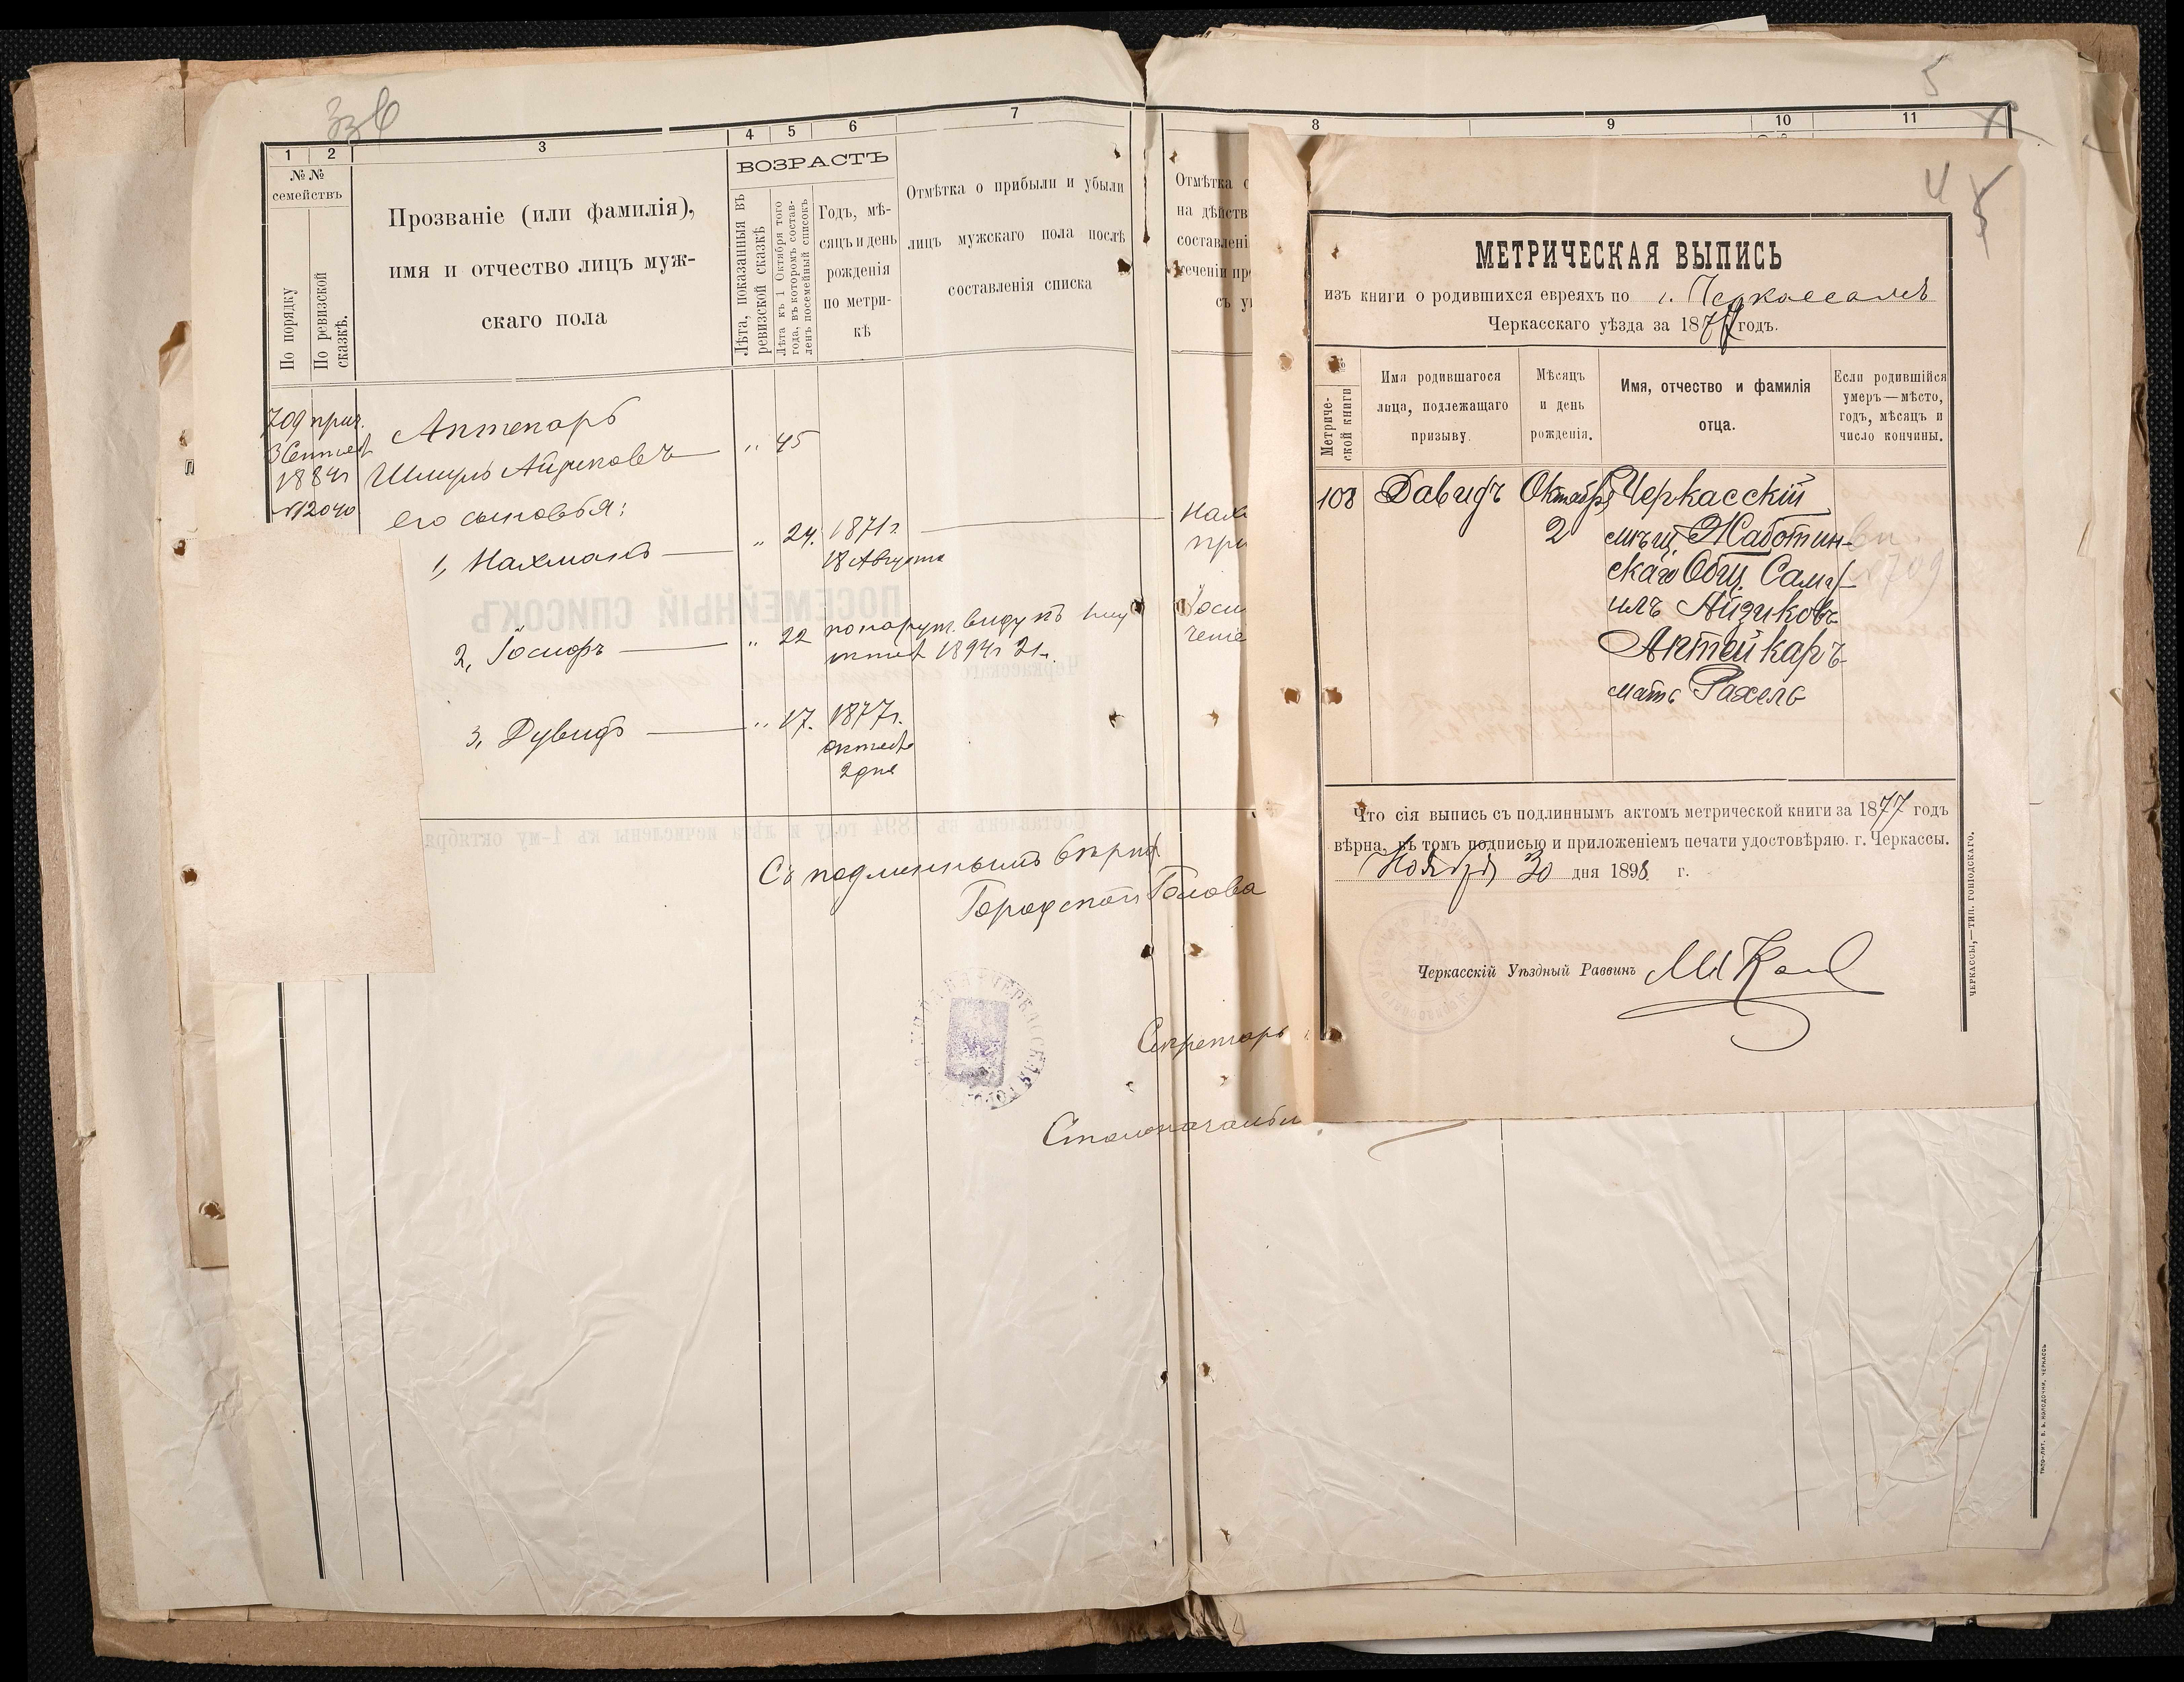 5
1
2
3
4
5
6
7
8
9
10
11
№ №
семействъ
По порядку
По ревизской
сказкѣ.
Прозваніе (или фамилія),
имя и отчество лицъ муж-
скаго пола
ВОЗРАСТЪ
Лѣта, показанныя въ
ревизской сказкѣ
Лѣта къ 1 Октября того
года, въ которомъ состав-
ленъ посемейный списокъ
Годъ, мѣ-
сяцъ и день
рожденія
по метри-
кѣ
Отмѣтка о прибыли и убыли
лицъ мужскаго пола послѣ
составленія списка
709 прич.
1884г
№12040
Аптекарь
Шмуль Айзиковъ „ 45
его сыновья:
1, Нахманъ „ 24. 1871г.
18 Августа
2, Іосифъ „ 22 по наруж. виду къ
1894г 21л.
3, Дувидъ „ 17. 1877г.
октяб
2 дня
Съ подлиннымъ вѣрно
Городской Голова
Секретарь
Столоначальн
ПОСЕМЕЙНЫЙ СПИСОКЪ
Черкасскаго
Составленъ въ 1894 году и лѣта исчислены къ 1-му октября
Отмѣтка о
на дѣйств
составлені
теченіи пр
съ у
Нах
при
Іоси
ченіе
4 5
МЕТРИЧЕСКАЯ ВЫПИСЬ
изъ книги о родившихся евреяхъ по г. Черкассамъ
Черкасскаго уѣзда за 1877 годъ.
№
Метриче-
ской книги
Имя родившагося
лица, подлежащаго
призыву.
Мѣсяцъ
и день
рожденія.
Имя, отчество и фамилія
отца.
Если родившійся
умеръ—мѣсто,
годъ, мѣсяцъ и
число кончины.
108 Давидъ Октября Черкасскій
2 мѣщ. Жаботин-
скаго Общ. Саму-
илъ Айзиковъ
Аптейкаръ
мать Рахель
№709
Что сія выпись съ подлиннымъ актомъ метрической книги за 1877 годъ
вѣрна, въ томъ подписью и приложеніемъ печати удостовѣряю. г. Черкассы.
Ноября 30 дня 1898 г.
Черкасскій Уѣздный Раввинъ
ЧЕРКАССЫ,—ТИП. ГОРОДСКАГО.